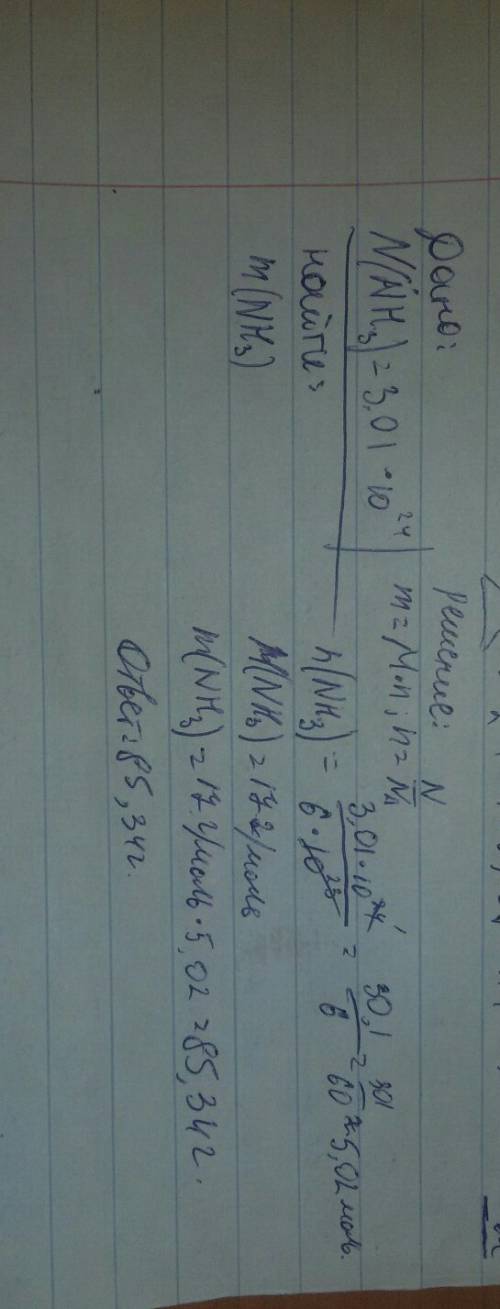 Дано:
N(NH₃) = 3,01 · 10²⁴
найти:
m(NH₃)
Решение:
m = M · n; n = N/Nₐ
n(NH₃) = 3,01·10²⁴/6·10²³ = 30,1/6 = 301/60 ≈ 5,02 моль.
M(NH₃) = 17 г/моль
m(NH₃) = 17 г/моль · 5,02 = 85,34 г.
Ответ: 85,34 г.